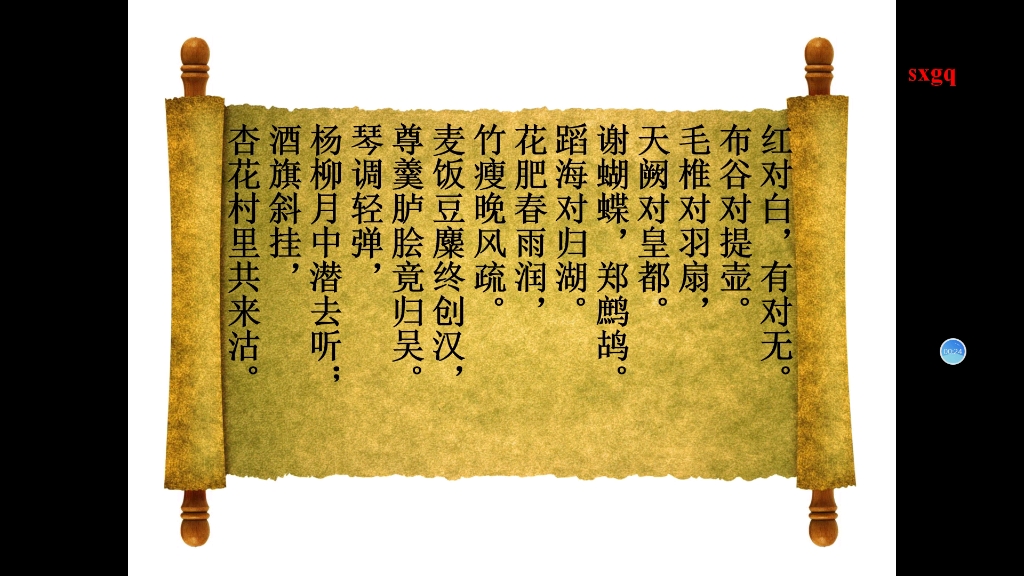 红对白，有对无。
布谷对提壶。
毛椎对羽扇，
天阙对皇都。
谢蝴蝶，郑鹧鸪。
蹈海对归湖。
花肥春雨润，
竹瘦晚风疏。
麦饭豆麋终创汉，
尊羹胪脍竟归吴。
琴调轻弹，
杨柳月中潜去听；
酒旗斜挂，
杏花村里共来沽。
sxgq